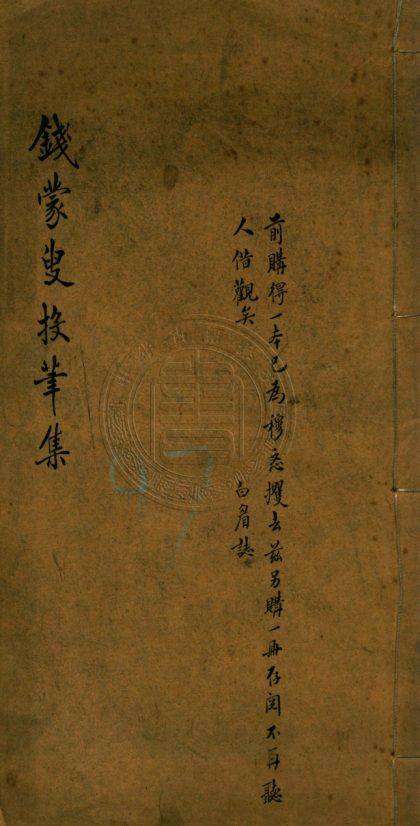 前購得一本已為穆忞攫去茲另購一冊存閱不再聽
人借觀矣
白眉誌
錢蒙叟投筆集